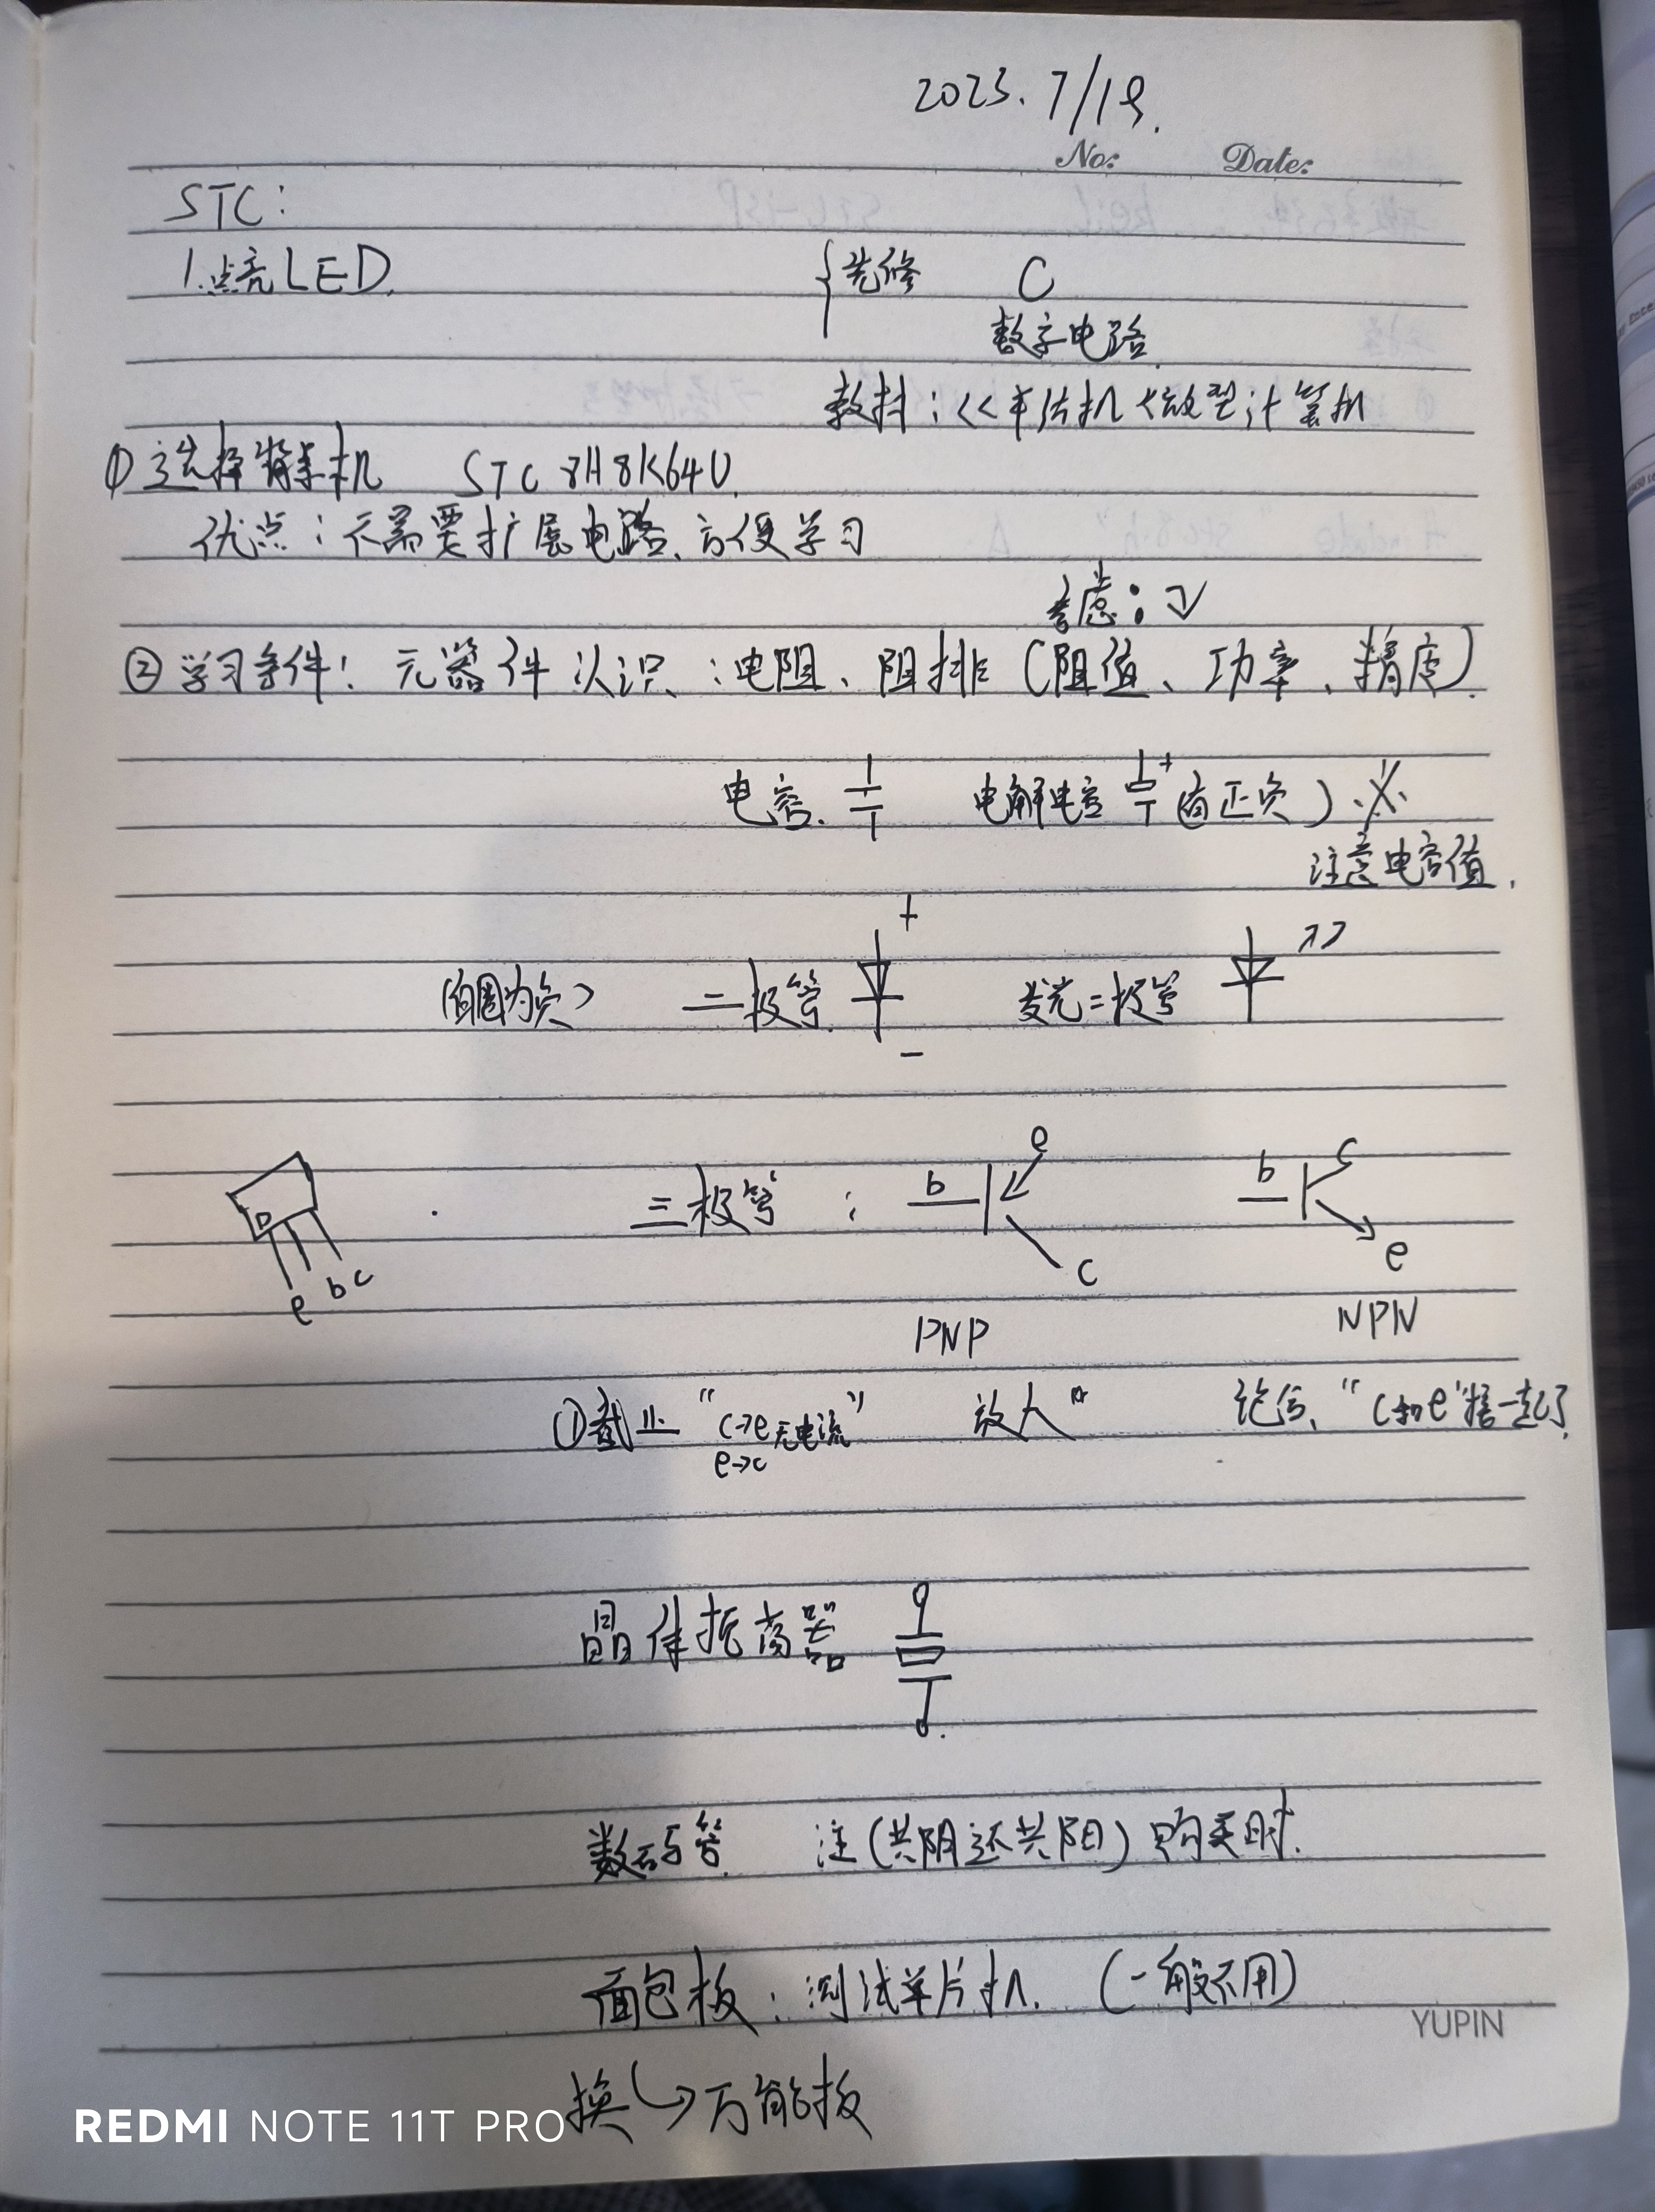 2023.7/19.
No: Date:
STC:
1.点亮LED.
{先修 C
数字电路
教材:<<单片机 微型计算机
①选择 机 STC 8H8K64U.
优点:不需要扩展电路、方便学习
考虑:↙
②学习条件! 元器件认识:电阻、阻排(阻值、功率、精度).
电容. 电解电容 + (有正负)※
注意电容值.
+
(有圈为负) 二极管. 发光二极管
-
e
三极管: b c
b c e
e b c
PNP NPN
①截止 "c→e 无电流" 放大" 饱和、"c和e"接一起了.
e→c
晶体振荡器
数码管. 注(共阴还共阳)购买时.
面包板:测试单片机. (一般不用)
YUPIN
换↪万能板
REDMI NOTE 11T PRO